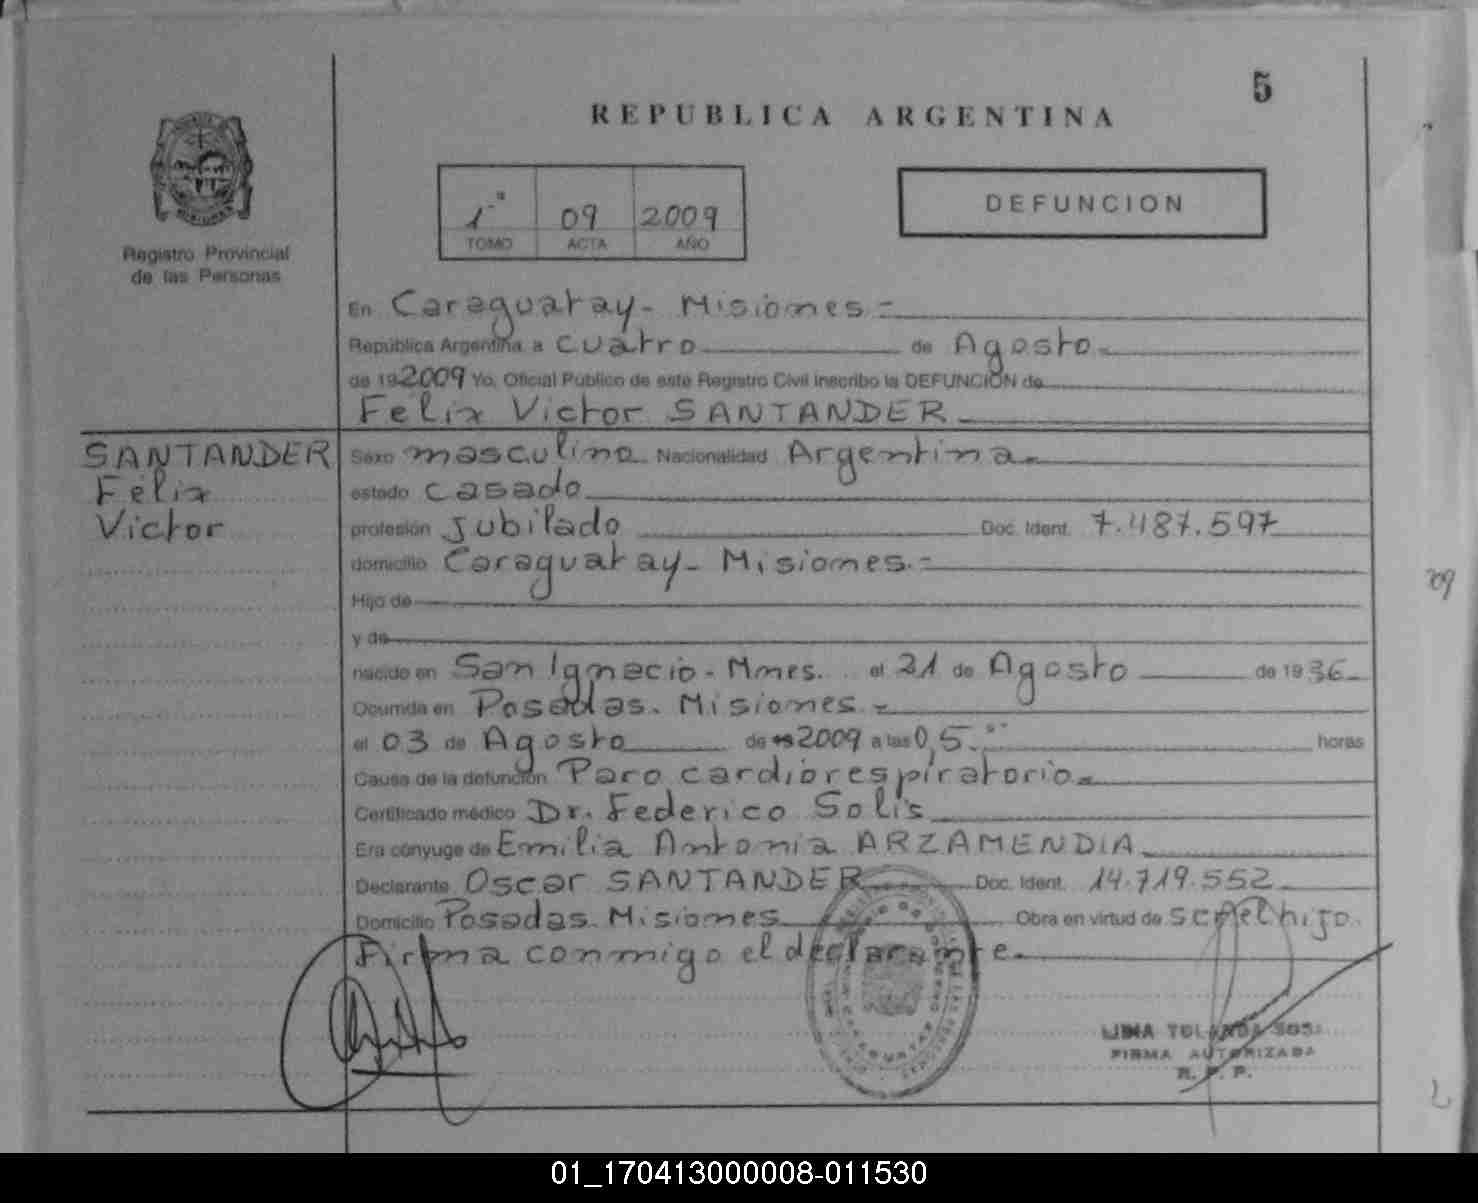 5
REPUBLICA ARGENTINA
1º 09 2009
TOMO ACTA AÑO
DEFUNCION
Registro Provincial
de las Personas
En Caraguatay - Misiones =
República Argentina, a cuatro de Agosto
de 19 2009 Yo, Oficial Público de este Registro Civil inscribo la DEFUNCION de
Felix Victor SANTANDER
SANTANDER
Felix
Victor
Sexo masculino Nacionalidad Argentina
estado casado
profesión Jubilado Doc. Ident. 7.487.597
domicilio Caraguatay - Misiones =
Hijo de
y de
nacido en San Ignacio - Mnes. el 21 de Agosto de 1936
Ocurrida en Posadas. Misiones =
el 03 de Agosto de 19 2009 a las 0,5 horas
Causa de la defunción Paro cardiorespiratorio
Certificado médico Dr. Federico Solis
Era cónyuge de Emilia Antonia ARZAMENDIA
Declarante Oscar SANTANDER Doc. Ident. 14.719.552
Domicilio Posadas. Misiones Obra en virtud de ser el hijo.
Firma conmigo el declarante.
FIRMA AUTORIZADA
R. P. P.
09
01_170413000008-011530